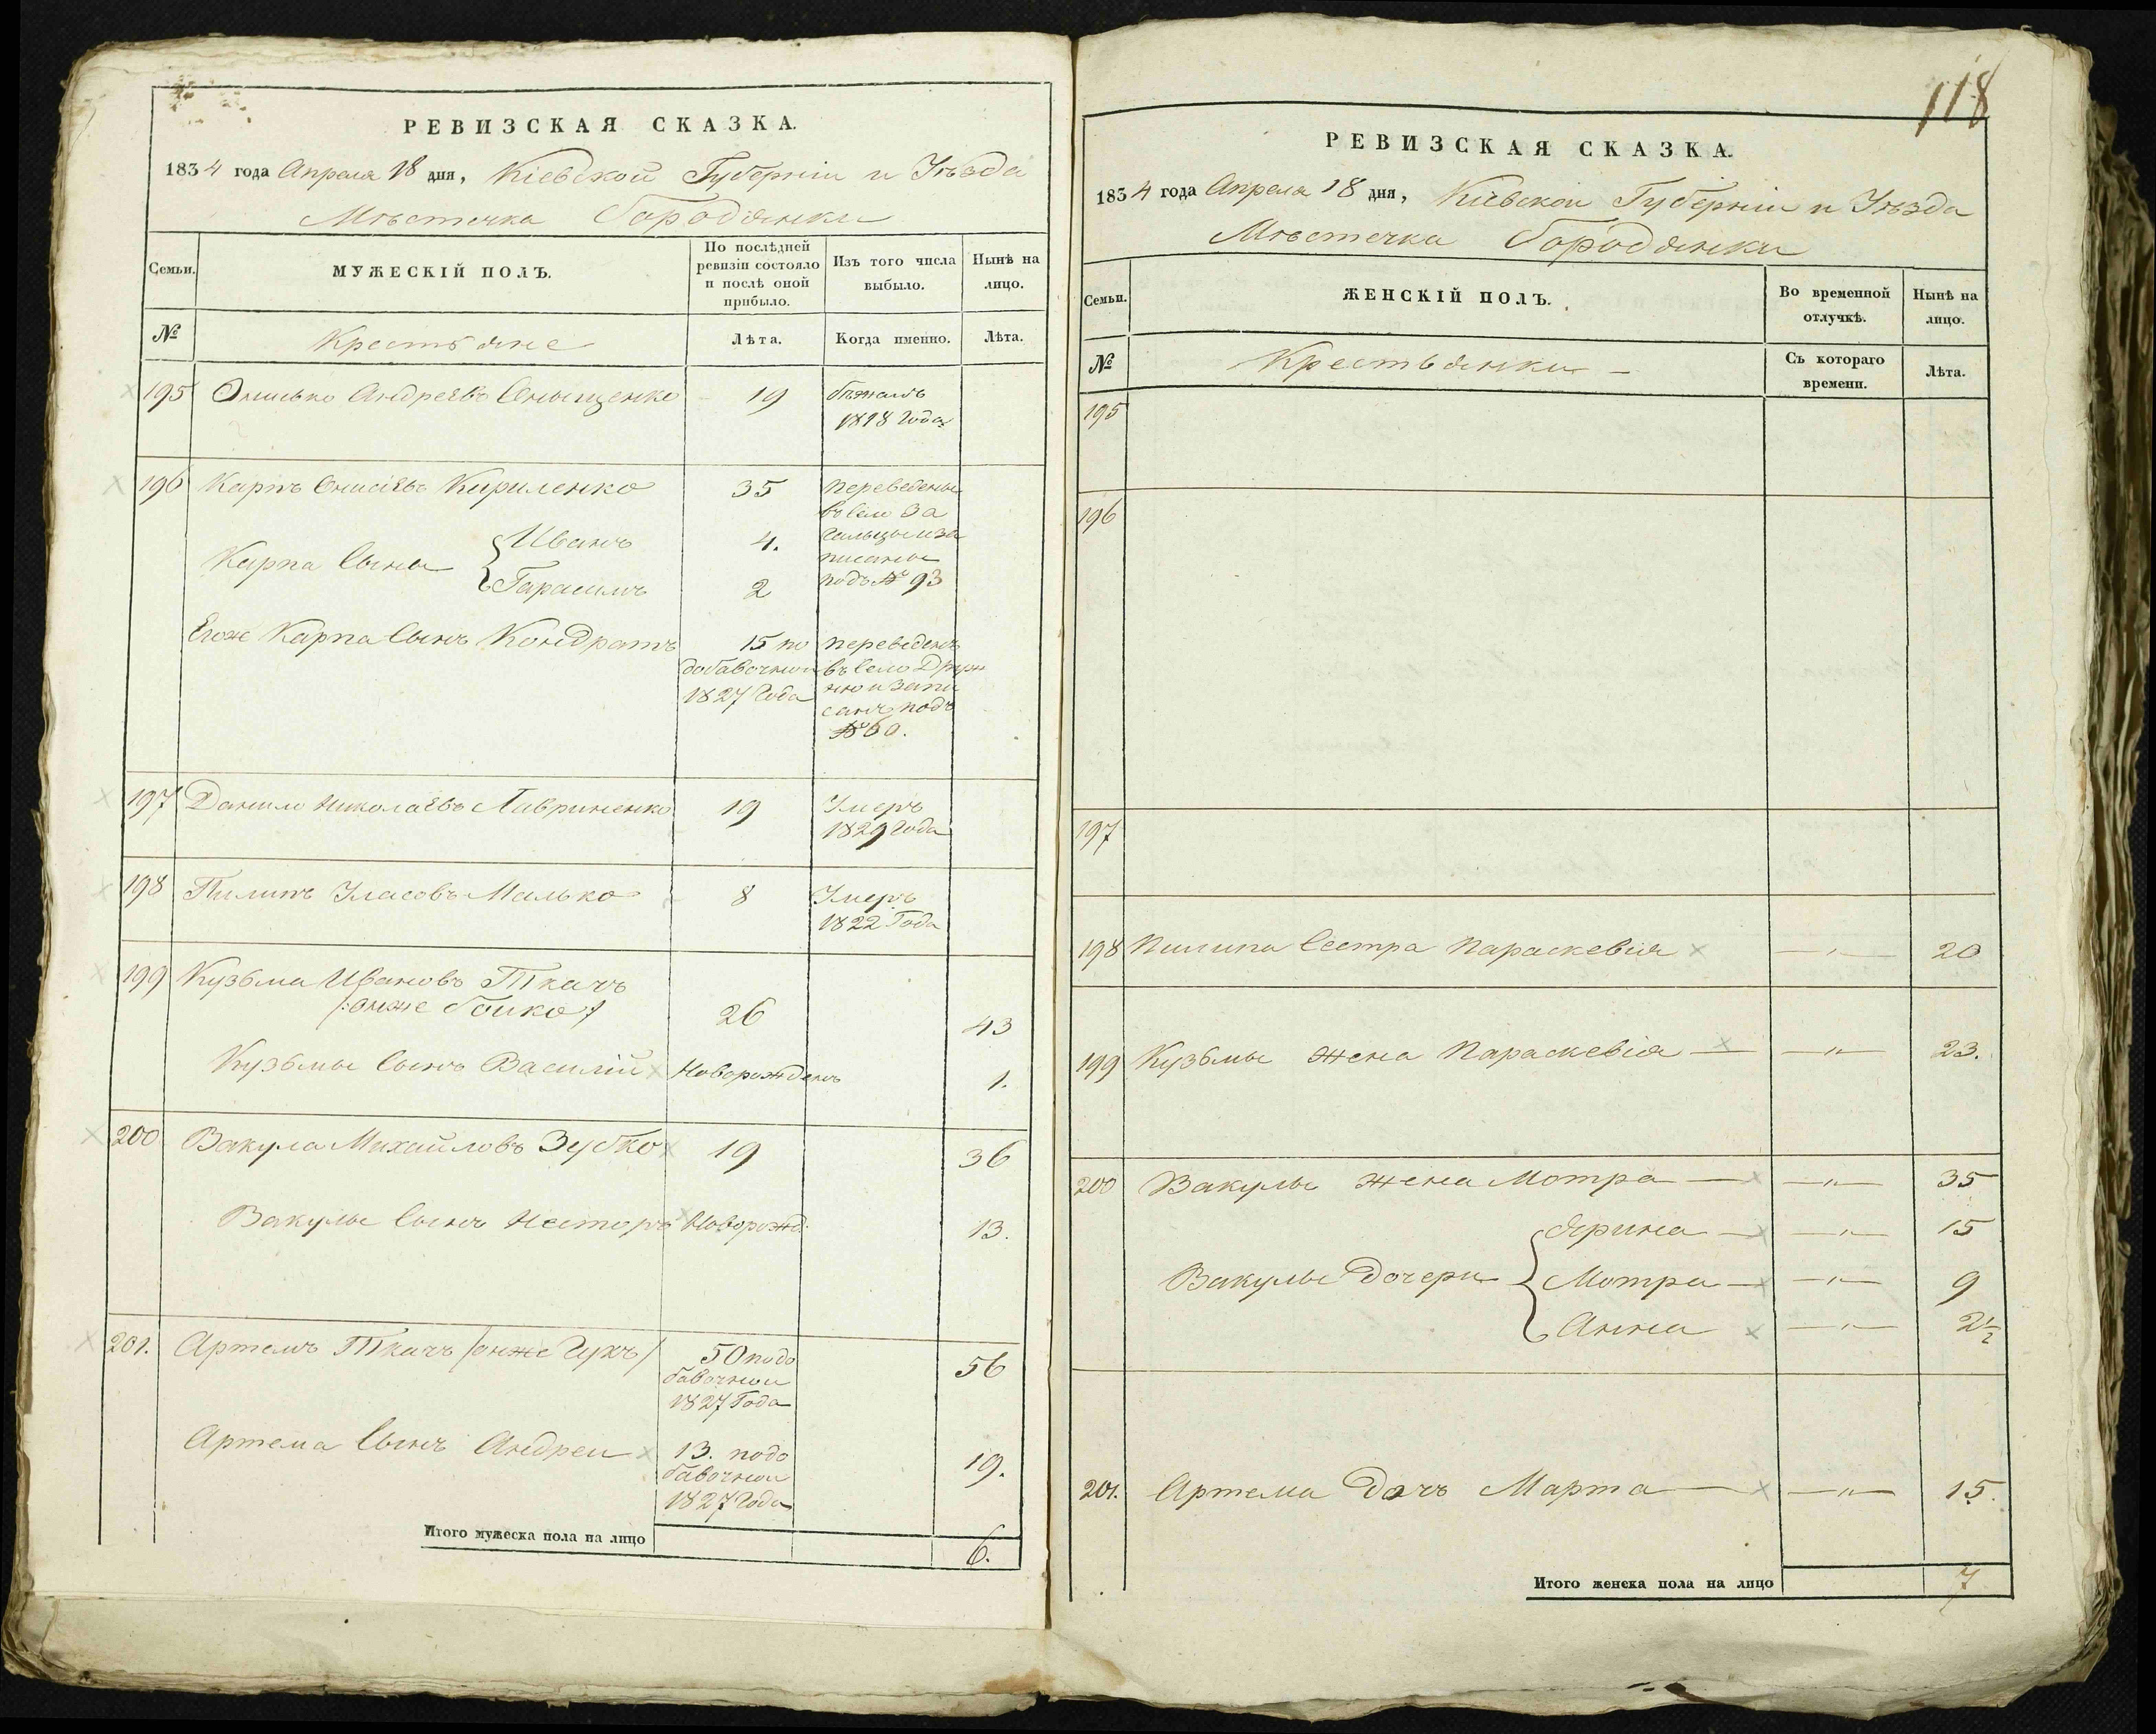 РЕВИЗСКАЯ СКАЗКА.
1834 года Апреля 18 дня, Кіевской Губерніи и Уѣзда
Мѣстечка Бородянки
Семьи.
МУЖЕСКІЙ ПОЛЪ.
По послѣдней ревизіи состояло и послѣ оной прибыло.
Изъ того числа выбыло.
Нынѣ на лицо.
№
Крестьяне
Лѣта.
Когда именно.
Лѣта.
195 Онисько Андреевъ 19
1818 Года
196 Карпъ Онисіевъ Кириленко 35 переведены
въ село За
гальцы и за
писаны
подъ № 93
Карпа Сыны { Иванъ 4.
Гарасимъ 2
Егоже Карпа Сынъ Кондратъ 15 по переведенъ
добавочной въ село Друж
1827 Года ню и запи
санъ подъ
№ 60.
197 Данило Николаевъ Лавриненко 19 Умеръ
1829 Года
198 Пилипъ Уласовъ Малько 8 Умеръ
1822 Года
199 Кузьма Ивановъ Ткачъ
/:онже Бойко:/ 26 43
Кузьмы Сынъ Василій Новорожденъ 1.
200 Вакула Михайловъ Зубко 19 36
Вакулы Сынъ Несторъ Новорожд: 13.
201. Артемъ Ткачъ /онже Цухъ/ 50 по до 56
бавочной
1827 Года
Артема Сынъ Андрей 13. по до 19.
бавочной
1827 Года
Итого мужеска пола на лицо 6.
118
РЕВИЗСКАЯ СКАЗКА.
1834 года Апреля 18 дня, Кіевской Губерніи и Уѣзда
Мѣстечка Бородянки
Семьи.
ЖЕНСКІЙ ПОЛЪ.
Во временной отлучкѣ.
Нынѣ на лицо.
№
Крестьянки
Съ котораго времени.
Лѣта.
195
196
197
198 Пилипа Сестра Параскевія — „ — 20
199 Кузьмы жена Параскевія — „ — 23.
200 Вакулы жена Мотра — „ — 35
Ярина — „ — 15
Вакулы Дочери { Мотра — „ — 9
Анна — „ — 2½
201. Артема Дочь Марта — „ — 15.
Итого женска пола на лицо 7